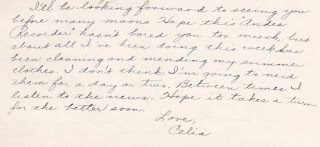 I'll be looking forward to seeing you
before many moons. Hope this
Recorder hasn't bored you too much, but
about all I've been doing this week has
been cleaning and mending my summer
clothes. I don't think I'm going to need
them for a day or two. Between times I
listen to the news. Hope it takes a turn
for the better soon.
Love,
Celia